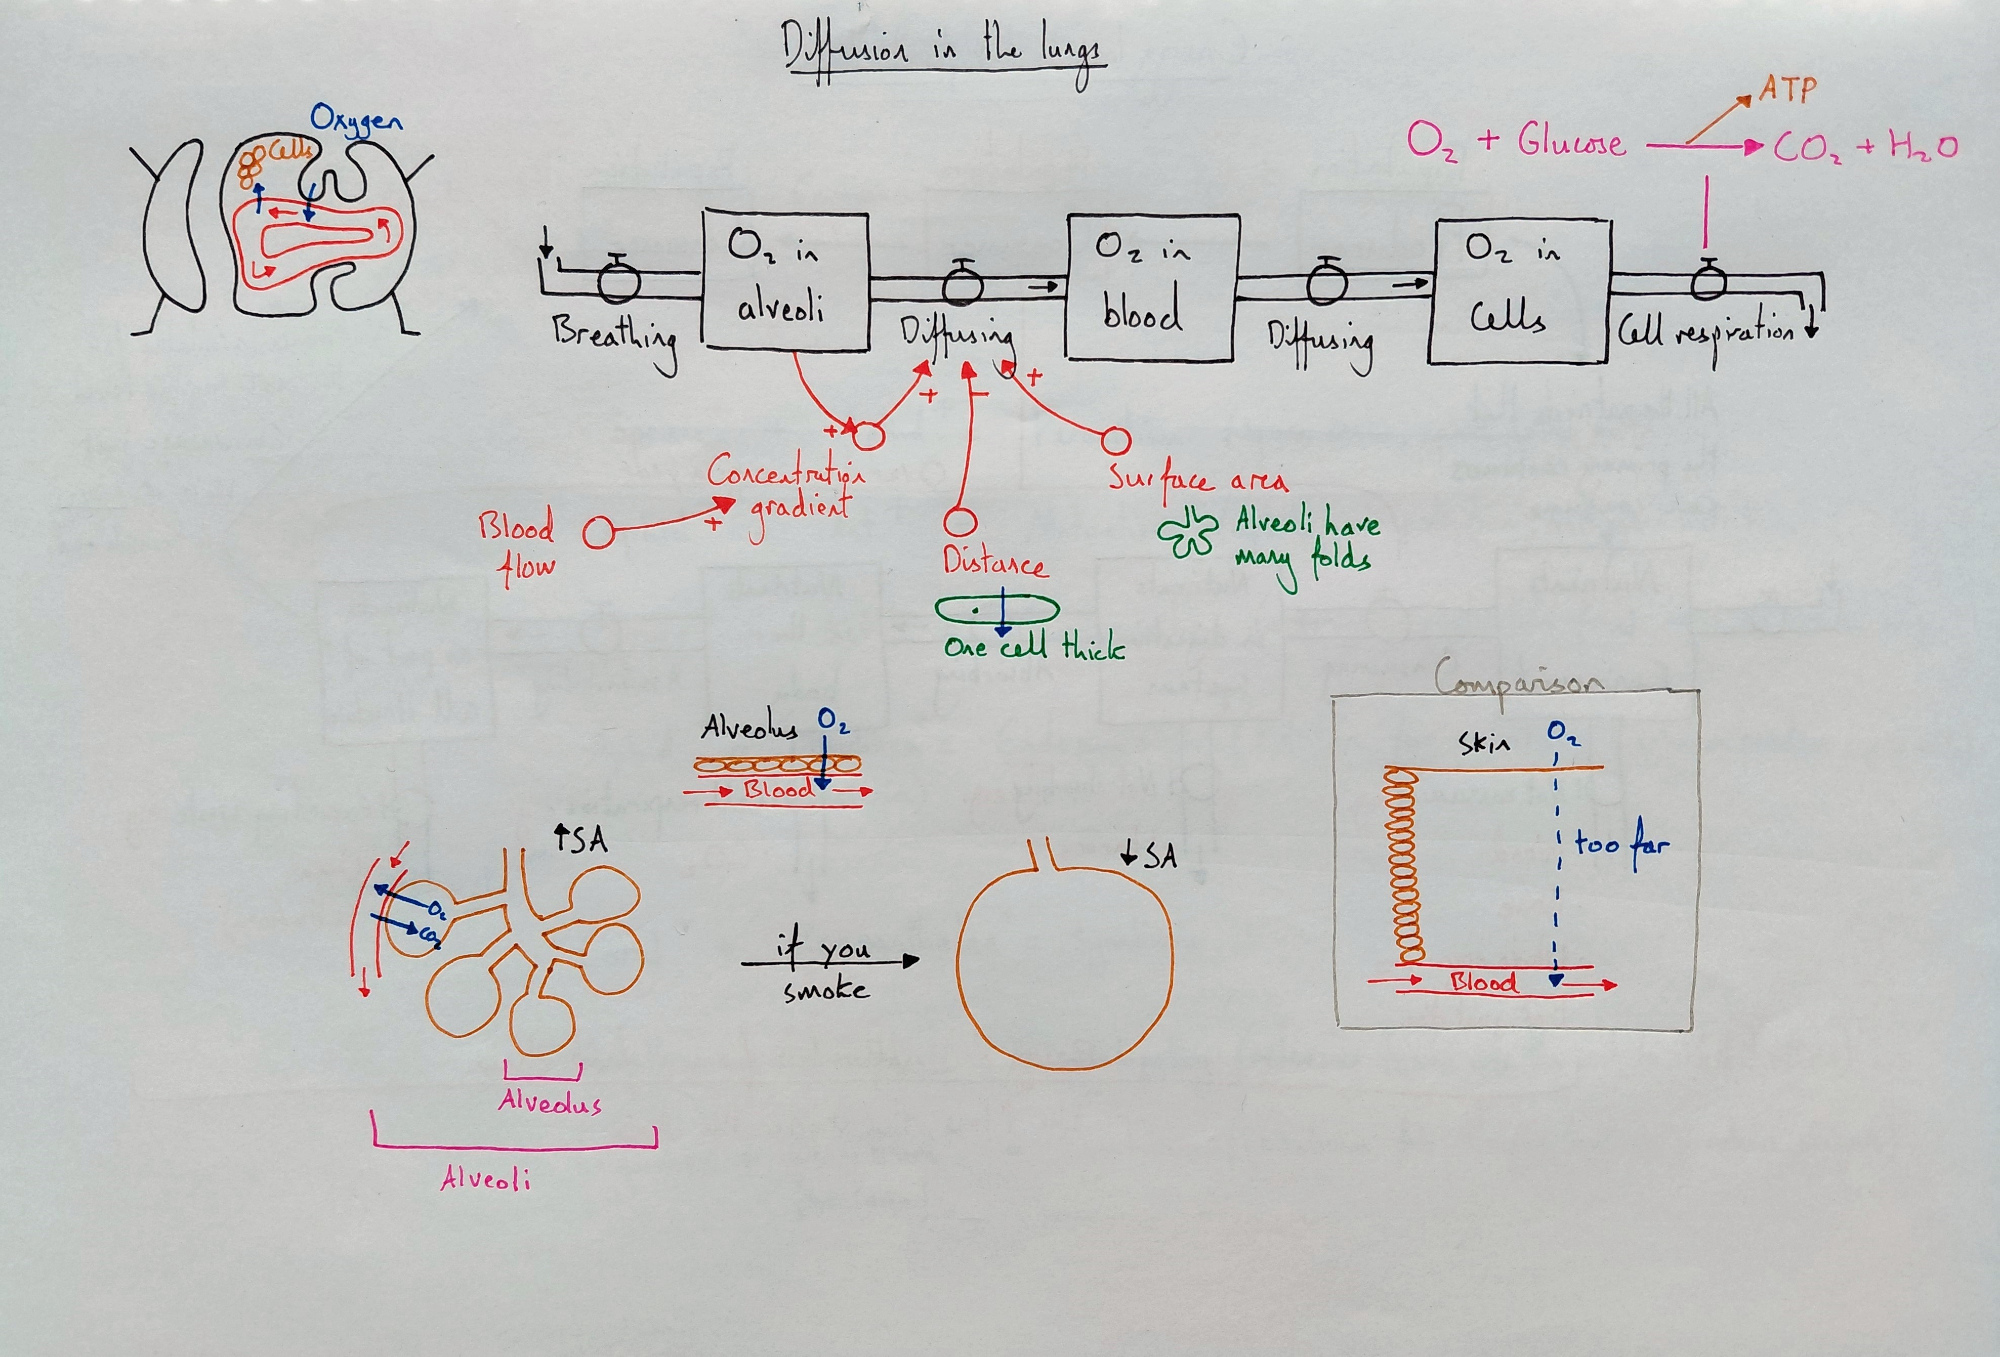 Diffusion in the lungs
Oxygen
Cells
ATP
O₂ + Glucose → CO₂ + H₂O
O₂ in
alveoli
O₂ in
blood
O₂ in
Cells
Breathing
Diffusing
Diffusing
Cell respiration
+
+
-
+
Concentration
gradient
+
Blood
flow
Surface area
Alveoli have
many folds
Distance
One cell thick
Alveolus O₂
Blood
Comparison
Skin O₂
too far
Blood
↑SA
O₂
CO₂
if you
smoke
↓SA
Alveolus
Alveoli